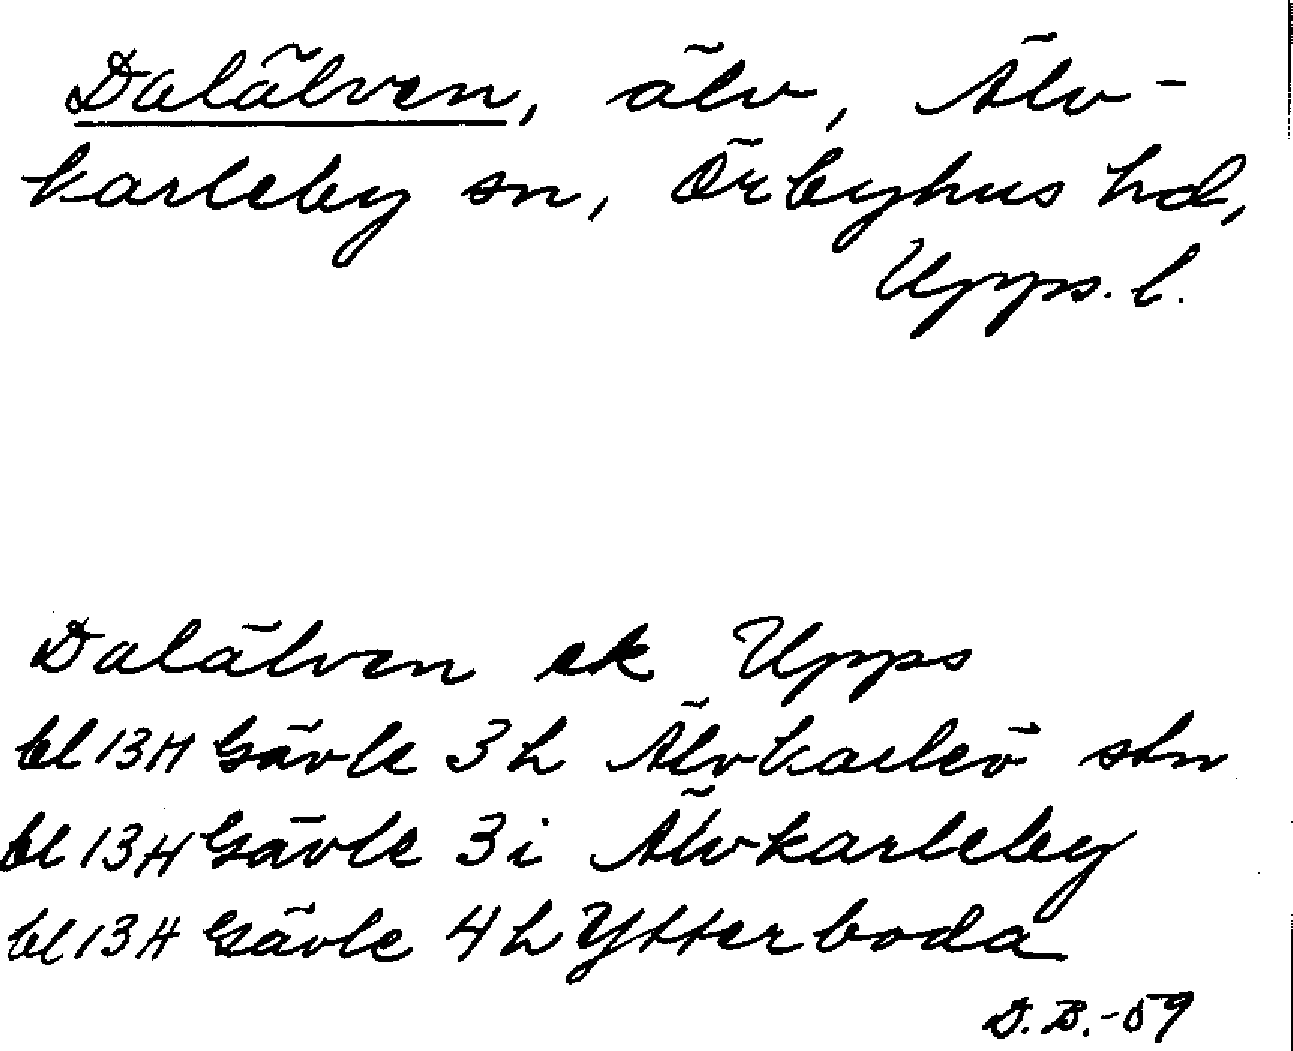 Dalälven, älv, Älv-
karleby sn, Örbyhus hd,
Upps. l.
Dalälven ek Upps
bl 13H Gävle 3h Älvkarleö stn
bl 13H Gävle 3i Älvkarleby
bl 13H Gävle 4h Ytterboda
D.B.-59